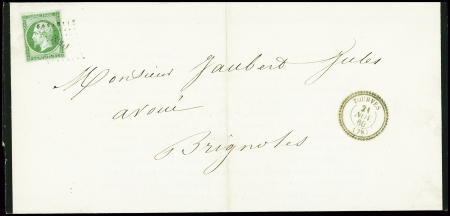 Monsieur Jaubert Jules
avoué
Brignoles
TOURVES
21
NOV.
60
(78)